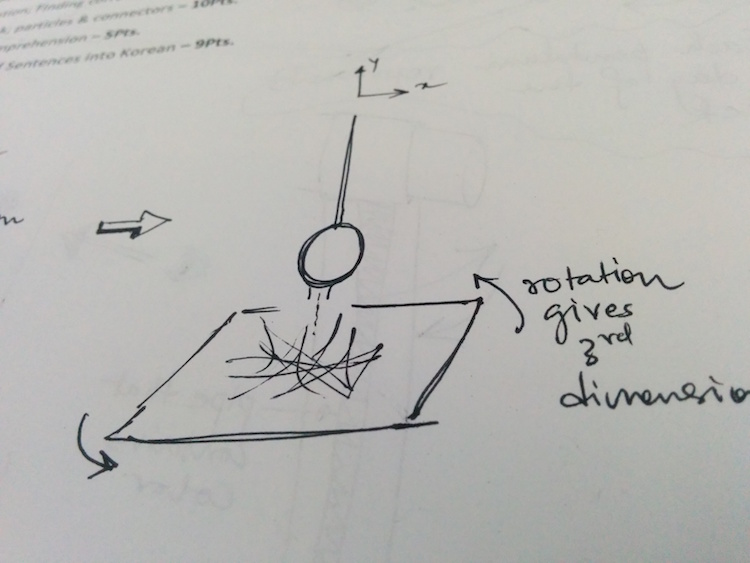 particles & connectors – 10Pts.
– 5Pts.
Sentences into Korean – 9Pts.
y
x
rotation
gives
3rd
dimensio